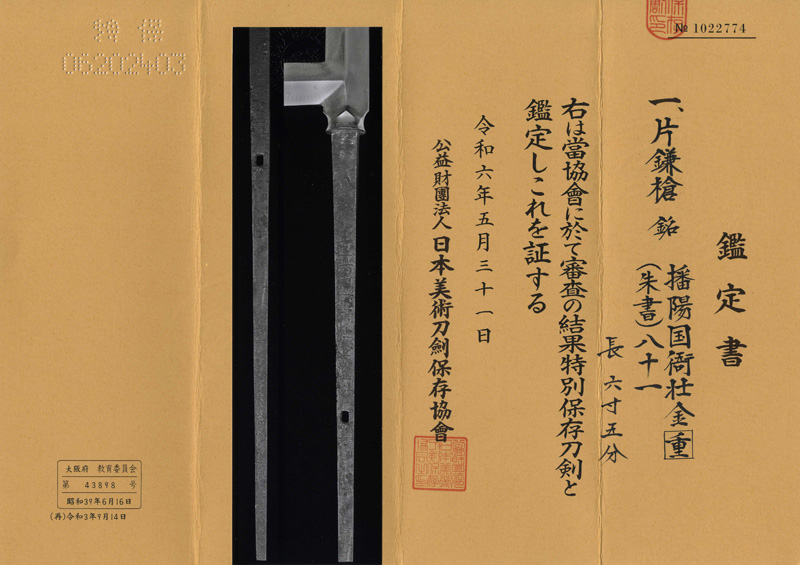 № 1022774
鑑定書
一、片鎌槍 銘 播陽国衙壮金重
(朱書)八十一
長 六寸五分
右は當協會に於て審査の結果特別保存刀剣と
鑑定しこれを証する
令和六年五月三十一日
公益財團法人 日本美術刀劍保存協會
特保
06202403
大阪府 教育委員会
第 43898 号
昭和39年6月16日
(再)令和3年9月14日